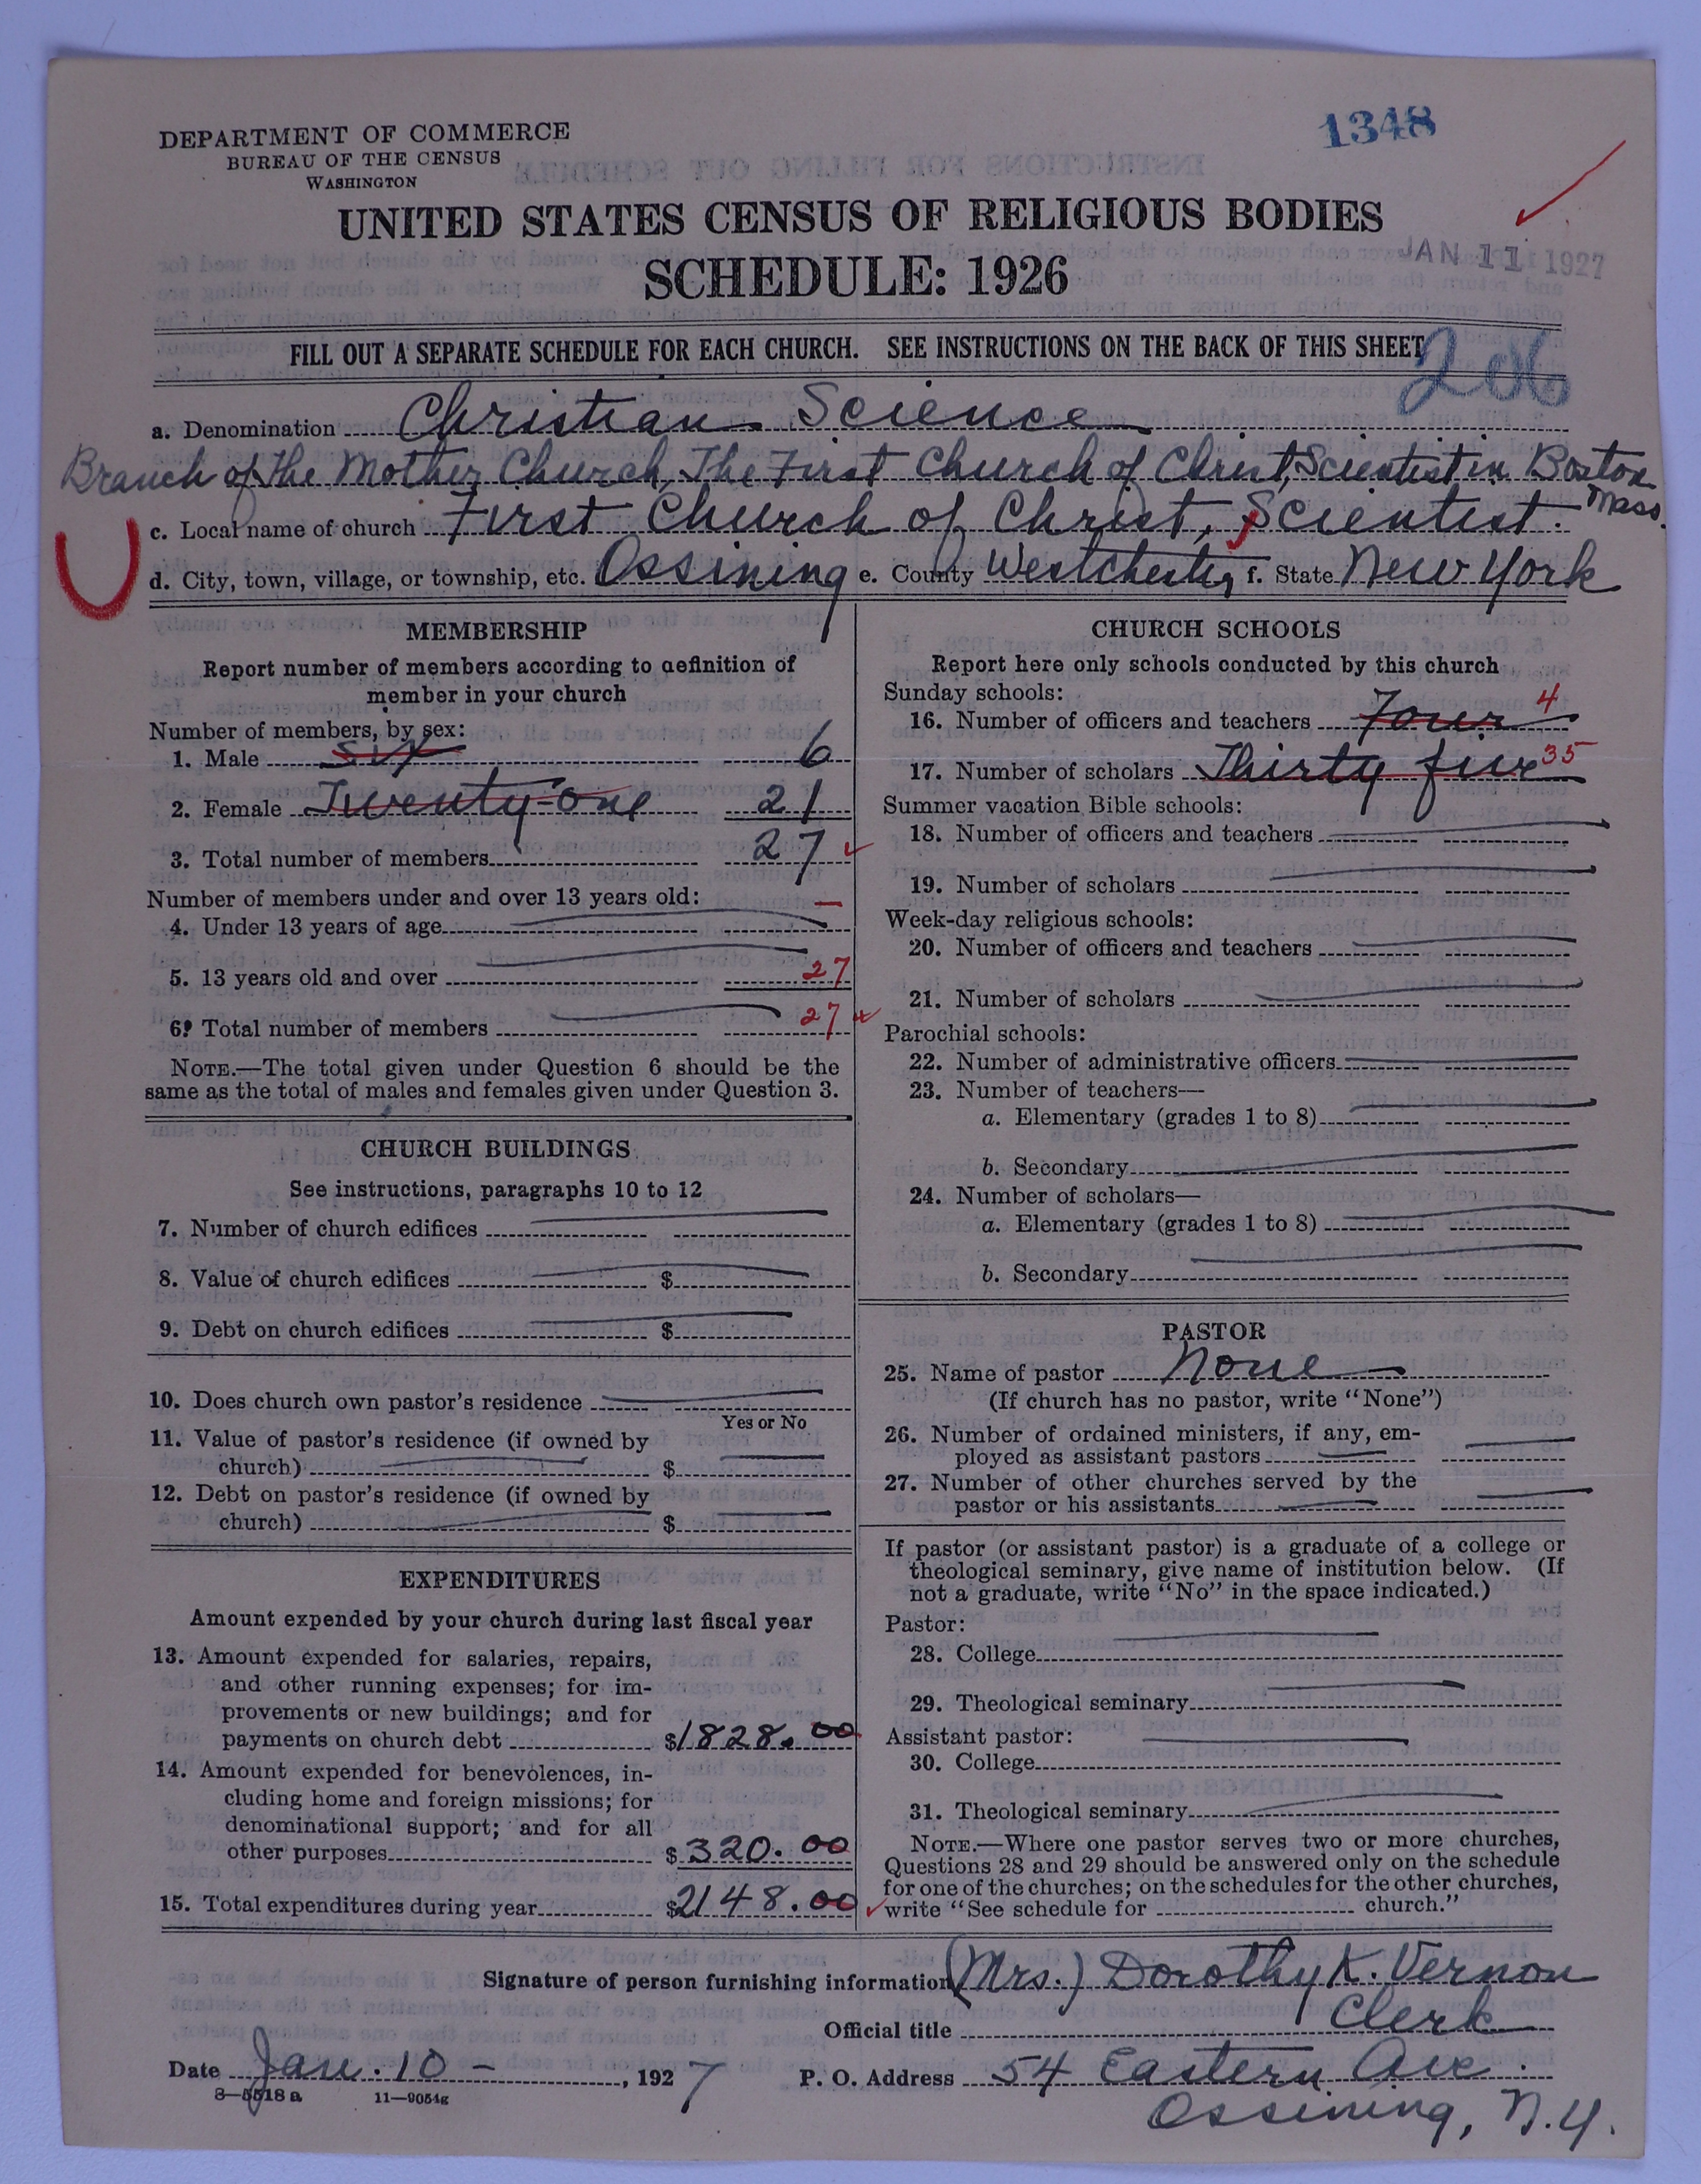 DEPARTMENT OF COMMERCE
BUREAU OF THE CENSUS
WASHINGTON
1348
UNITED STATES CENSUS OF RELIGIOUS BODIES
JAN 11 1927
SCHEDULE: 1926
FILL OUT A SEPARATE SCHEDULE FOR EACH CHURCH. SEE INSTRUCTIONS ON THE BACK OF THIS SHEET
206
a. Denomination Christian Science
Branch of The Mother Church, The First Church of Christ, Scientist in Boston Mass.
c. Local name of church First Church of Christ, Scientist.
d. City, town, village, or township, etc. Ossining e. County Westchester f. State New York
MEMBERSHIP
Report number of members according to definition of
member in your church
Number of members, by sex:
1. Male six 6
2. Female Twenty-one 21
3. Total number of members 27
Number of members under and over 13 years old:
4. Under 13 years of age
5. 13 years old and over 27
6. Total number of members 27
NOTE.—The total given under Question 6 should be the
same as the total of males and females given under Question 3.
CHURCH BUILDINGS
See instructions, paragraphs 10 to 12
7. Number of church edifices
8. Value of church edifices $
9. Debt on church edifices $
10. Does church own pastor's residence
Yes or No
11. Value of pastor's residence (if owned by
church) $
12. Debt on pastor's residence (if owned by
church) $
EXPENDITURES
Amount expended by your church during last fiscal year
13. Amount expended for salaries, repairs,
and other running expenses; for im-
provements or new buildings; and for
payments on church debt $1828.00
14. Amount expended for benevolences, in-
cluding home and foreign missions; for
denominational support; and for all
other purposes $320.00
15. Total expenditures during year $2148.00
CHURCH SCHOOLS
Report here only schools conducted by this church
Sunday schools:
16. Number of officers and teachers Four 4
17. Number of scholars Thirty five 35
Summer vacation Bible schools:
18. Number of officers and teachers
19. Number of scholars
Week-day religious schools:
20. Number of officers and teachers
21. Number of scholars
Parochial schools:
22. Number of administrative officers
23. Number of teachers—
a. Elementary (grades 1 to 8)
b. Secondary
24. Number of scholars—
a. Elementary (grades 1 to 8)
b. Secondary
PASTOR
25. Name of pastor None
(If church has no pastor, write "None")
26. Number of ordained ministers, if any, em-
ployed as assistant pastors
27. Number of other churches served by the
pastor or his assistants
If pastor (or assistant pastor) is a graduate of a college or
theological seminary, give name of institution below. (If
not a graduate, write "No" in the space indicated.)
Pastor:
28. College
29. Theological seminary
Assistant pastor:
30. College
31. Theological seminary
NOTE.—Where one pastor serves two or more churches,
Questions 28 and 29 should be answered only on the schedule
for one of the churches; on the schedules for the other churches,
write "See schedule for church."
Signature of person furnishing information (Mrs.) Dorothy K. Vernon
Official title Clerk
Date Jan. 10 - , 1927
P. O. Address 54 Eastern Ave.
Ossining, N.Y.
8—5518a 11—9054g